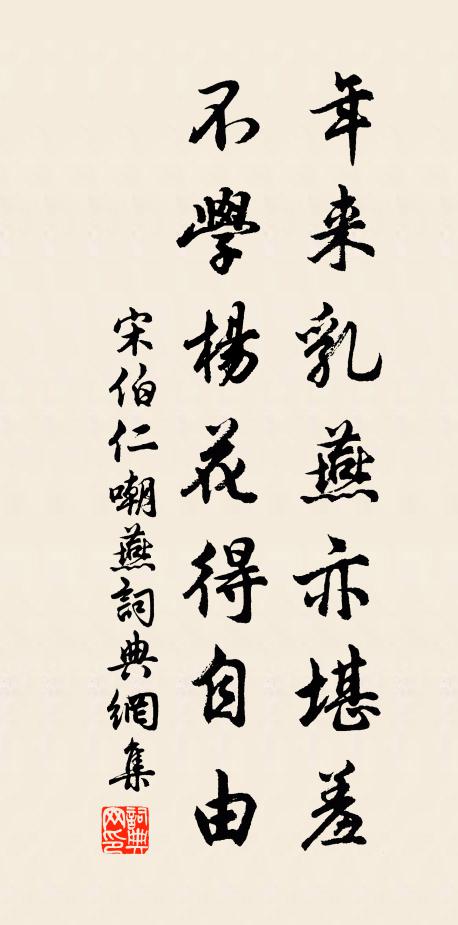 年来乳燕亦堪羞
不學楊花得自由
宋伯仁嘲燕詞典網集
詞典网印